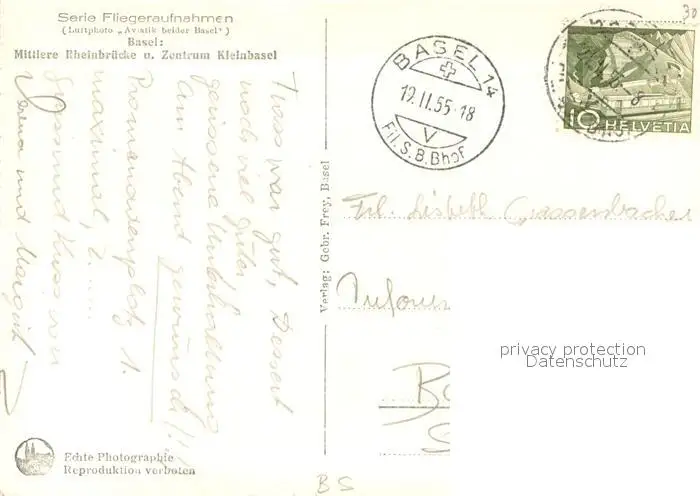 Serie Fliegeraufnahmen
(Luftphoto „Aviatik beider Basel“)
Basel:
Mittlere Rheinbrücke u. Zentrum Kleinbasel
war gut, Dessert
noch viel guter,
Am Abend gewünscht!!
Promenadenplatz 1.
maximal,
Gruss und Kuss von
Verena und Margrit
Echte Photographie
Reproduktion verboten
Verlag: Gebr. Frey, Basel
BASEL 14
12.II.55-18
V
Fil. S.B.Bhof
30
10 HELVETIA
Frl. Lisbeth
privacy protection
Datenschutz
BS